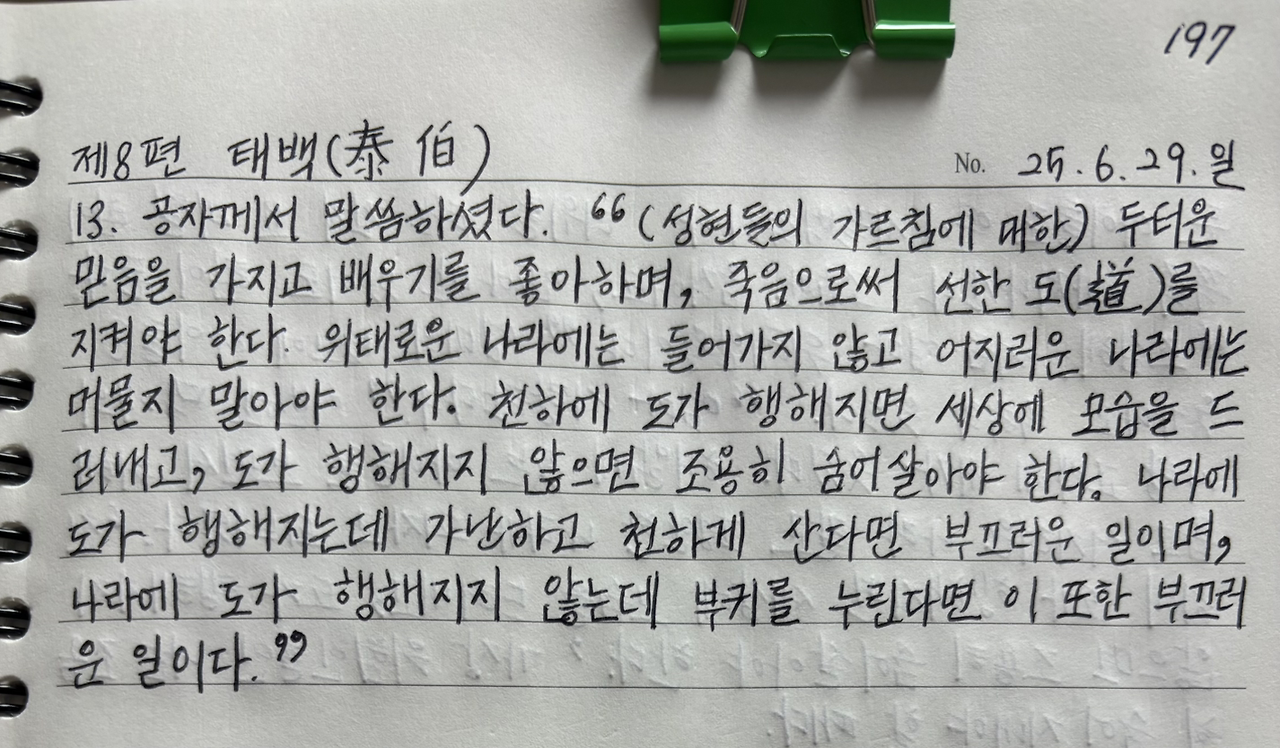 197
제8편 태백(泰伯) No. 25.6.29.일
13. 공자께서 말씀하셨다. “(성현들의 가르침에 대한) 두터운
믿음을 가지고 배우기를 좋아하며, 죽음으로써 선한 도(道)를
지켜야 한다. 위태로운 나라에는 들어가지 않고 어지러운 나라에는
머물지 말아야 한다. 천하에 도가 행해지면 세상에 모습을 드
러내고, 도가 행해지지 않으면 조용히 숨어살아야 한다. 나라에
도가 행해지는데 가난하고 천하게 산다면 부끄러운 일이며,
나라에 도가 행해지지 않는데 부귀를 누린다면 이 또한 부끄러
운 일이다.”